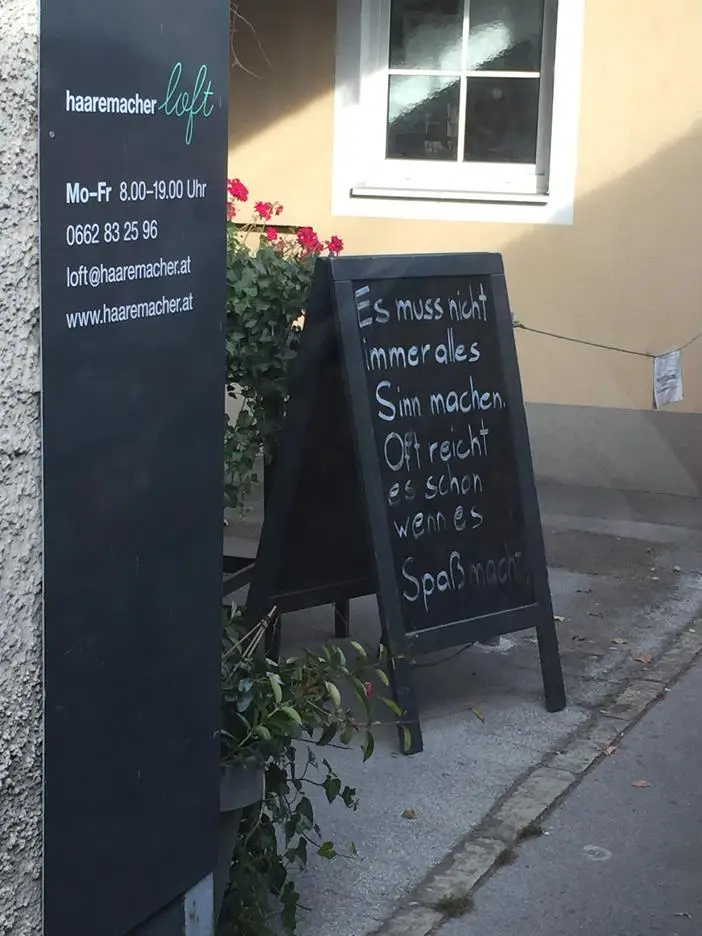 haaremacher loft
Mo–Fr 8.00–19.00 Uhr
0662 83 25 96
loft@haaremacher.at
www.haaremacher.at
Es muss nicht
immer alles
Sinn machen.
Oft reicht
es schon
wenn es
Spaß macht.